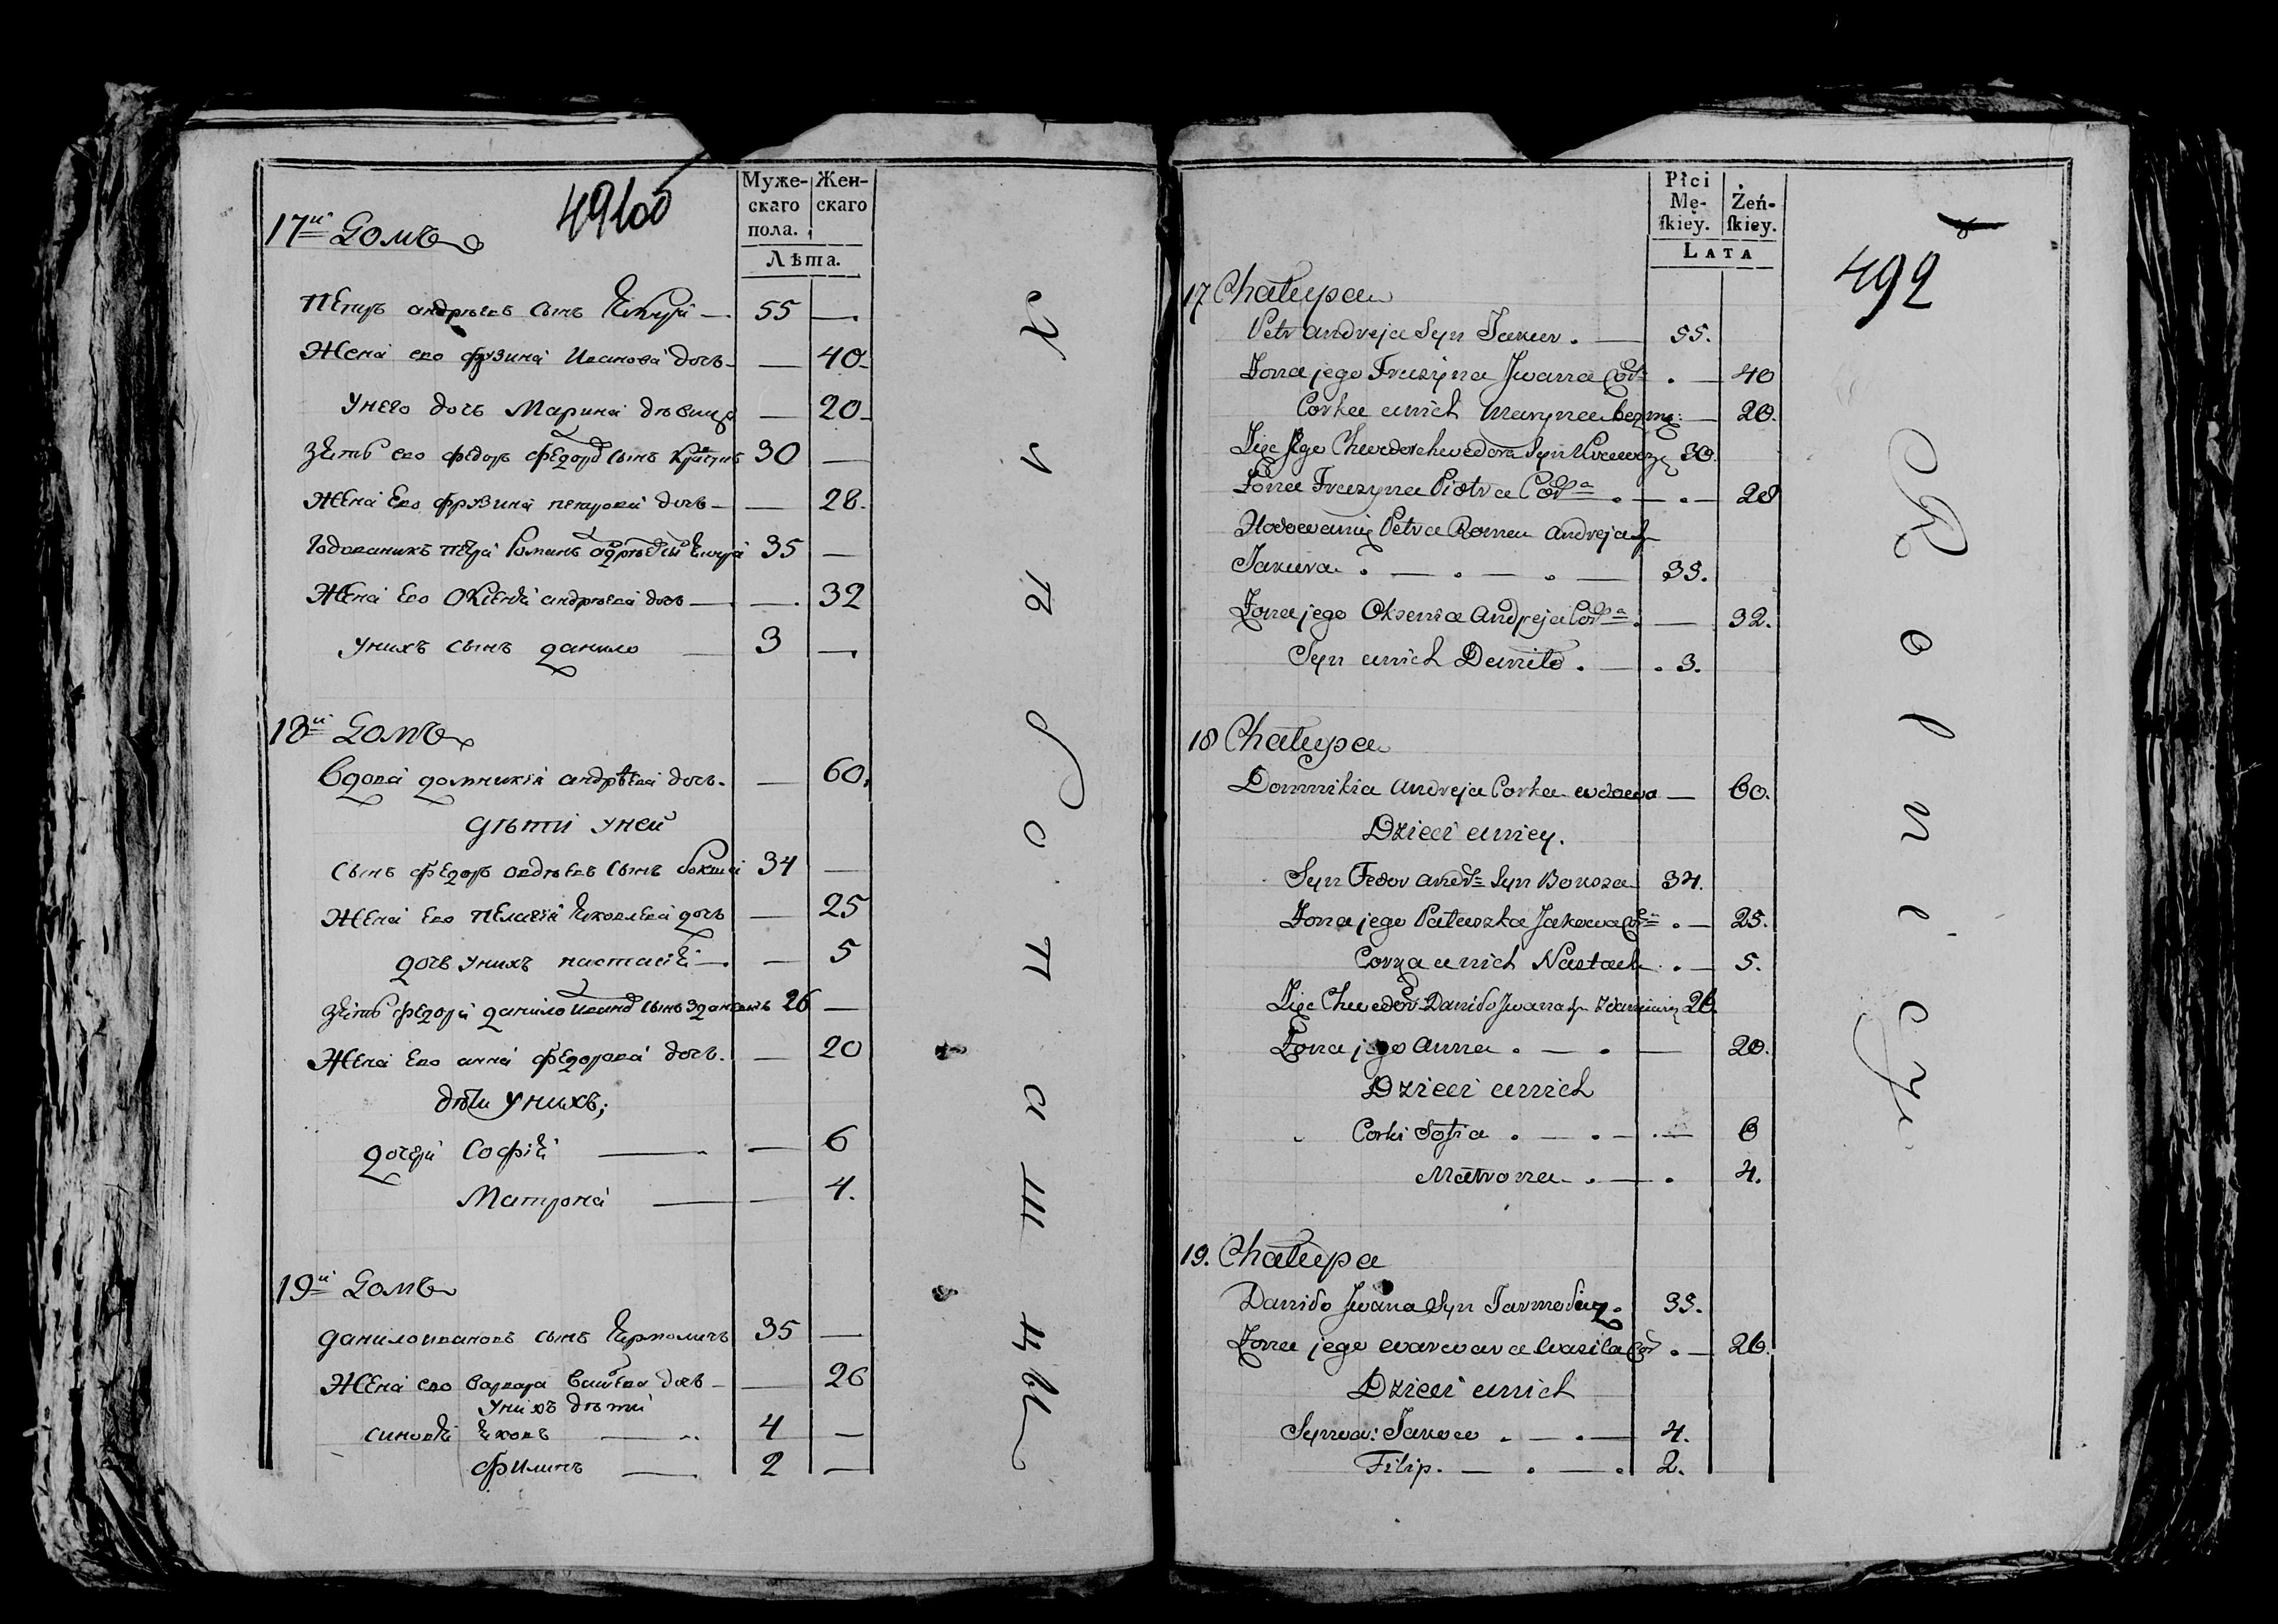 49100
Муже-
скаго
пола.
Жен-
скаго
Лѣта.
17й Домъ
Петръ андрѣевъ сынъ
55 —
Жена ево фрузина Иванова дочь — 40
Унего дочь Марина дѣвица — 20
Зять ево федоръ сынъ 30 —
Жена Ево фрузина петрова дочь — 28.
Годованикъ петра Романъ 35 —
Жена Ево андрѣева дочь — 32
Унихъ сынъ данило 3 —
18й Домъ
Вдова домникия андрѣева дочь — 60.
Дѣти Уней
Сынъ федоръ сынъ 34 —
Жена Ево дочь — 25
дочь Унихъ — 5
Зять федора данило сынъ 26 —
Жена Ево анна федорова дочь. — 20
дѣти Унихъ;
дочери Софія — 6
Матрона — 4.
19й Домъ
данило ивановъ сынъ 35 —
Жена ево варвара дочь — 26
Унихъ дѣти
4 —
филипъ 2 —
Х л ѣ б о п а ш ц ы
492
Płci
Mę-
ſkiey.
Żeń-
ſkiey.
LATA
17 Chałupa
Petr Andreja Syn Jakur 55.
Żona jego Fruzyna Jwana Cór: 40
Corka unich Maryna 20.
Zięc Jego Chwedor Chwedora Syn 30.
Żona Fruzyna Piotra Corka 28
Hodowaniec Petra Roman Andreja Sy
Jakura 35.
Żona jego Oksenia Andreja Corka 32.
Syn unich Daniło 3.
18 Chałupa
Domnikia Andreja Corka wdowa 60.
Dzieci uniey.
Syn Fedor Syn Boksza 34.
Żona jego Palaszka Jakowa Cor: 25.
Corka unich Nasta 5.
Zięc Chwedora Daniło Jwana Sy 26.
Żona jego Anna 20.
Dzieci unich
Corki Sofia 6
Matrona 4.
19. Chałupa
Daniło Jwana Syn 35.
Żona jego Warwara Wasila Cor 26.
Dzieci unich
Synowi: Jakow 4.
Filip. 2.
R o l n i c y